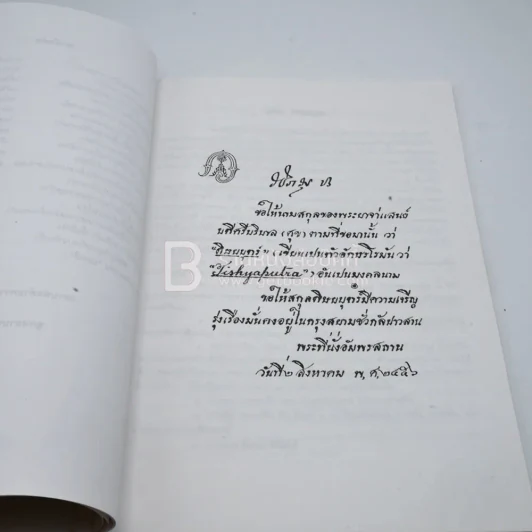 ขอให้นามสกุลของพระยาอาแสนจ์
บดีศรีบริบาล (สุข) ตามที่ขอมานั้น ว่า
"ศิษยบุตร์" (เขียนเปนตัวอักษรโรมัน ว่า
"Śishyaputra") อันเปนมงคลนาม
ขอให้สกุลศิษยบุตร์มีความเจริญ
รุ่งเรืองมั่นคงอยู่ในกรุงสยามชั่วกัลปาวสาน
พระที่นั่งอัมพรสถาน
วันที่ ๒ สิงหาคม พ.ศ. ๒๔๕๖